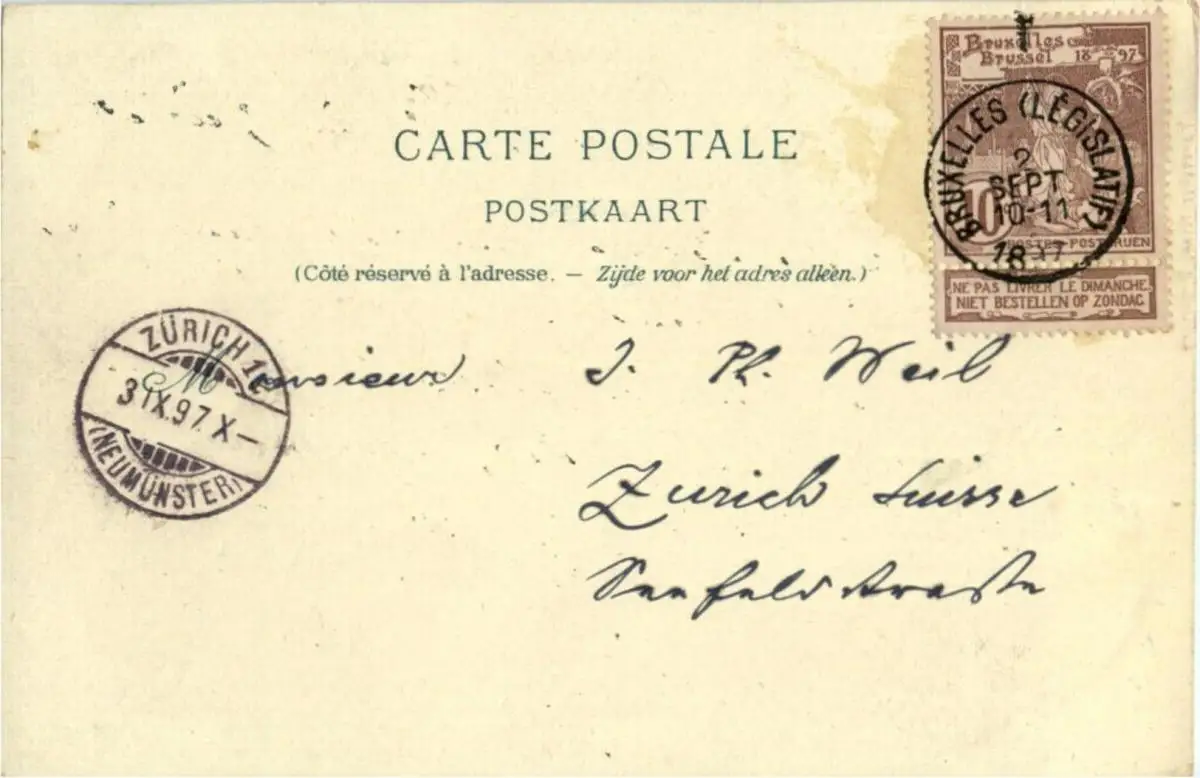 Bruxelles 1897
Brussel
BRUXELLES (LÉGISLATIF)
2
SEPT
10-11
1897
10
POSTES-POSTERIJEN
NE PAS LIVRER LE DIMANCHE.
NIET BESTELLEN OP ZONDAG
CARTE POSTALE
POSTKAART
(Côté réservé à l'adresse. — Zijde voor het adres alleen.)
ZÜRICH 12
3 IX.97 X—
(NEUMÜNSTER)
Monsieur J. Ph. Weil
Zurich Suisse
Seefeldstrasse